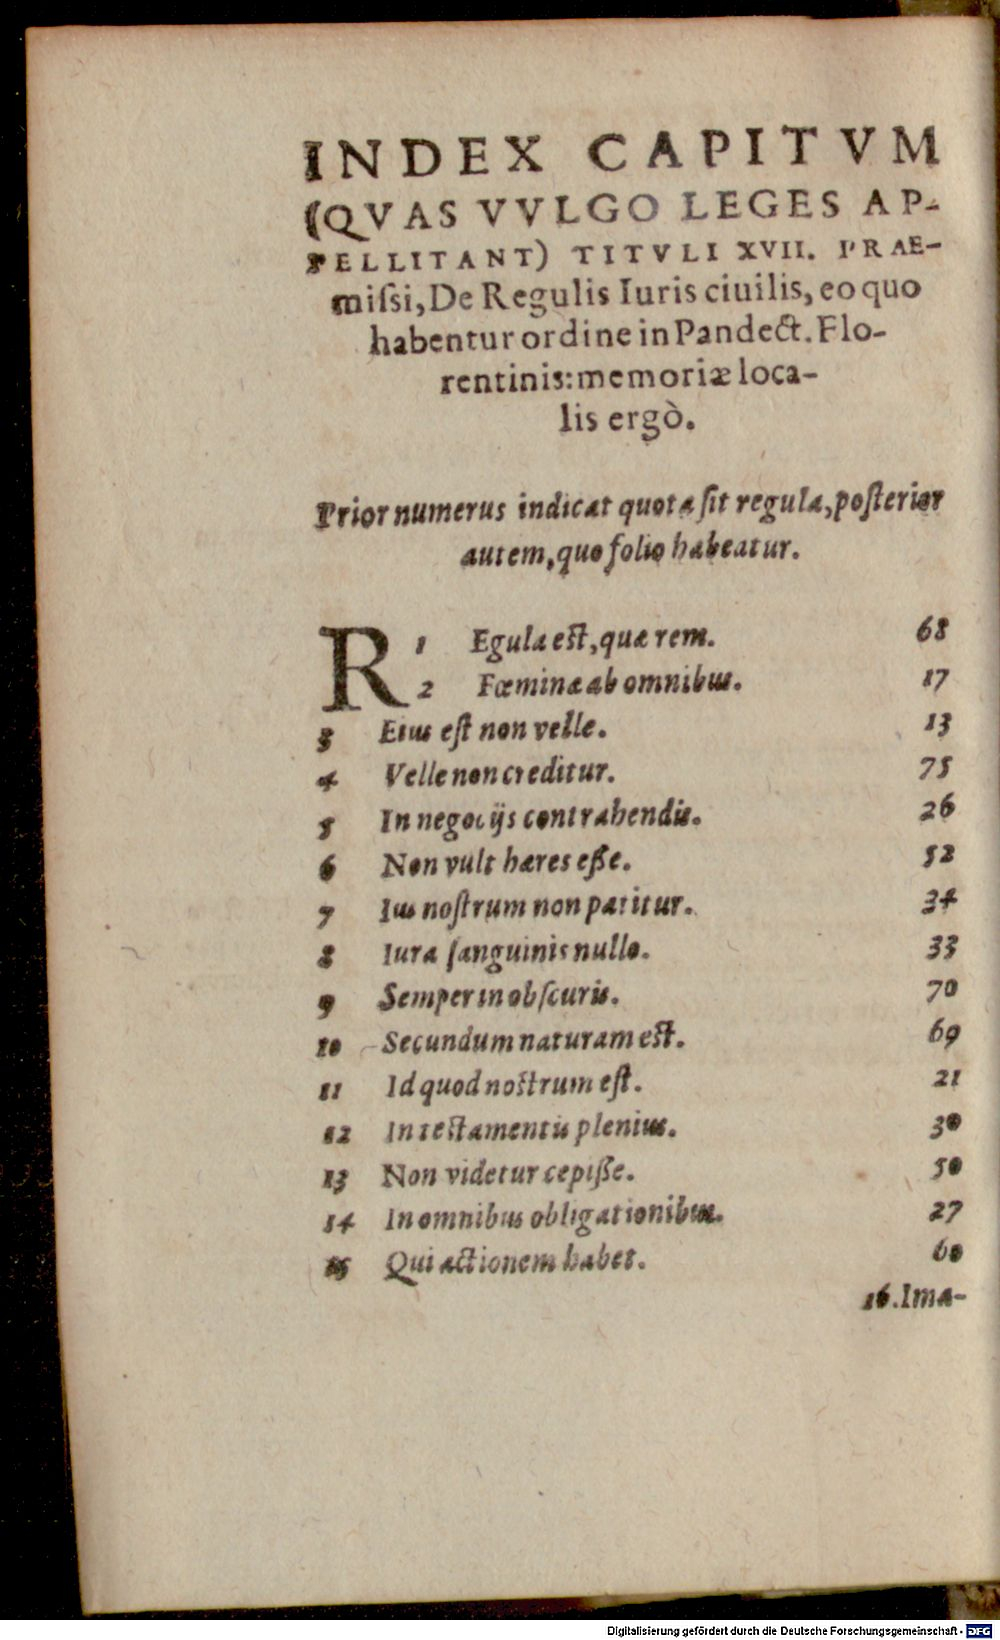 INDEX CAPITVM
(QVAS VVLGO LEGES AP-
PELLITANT) TITVLI XVII. PRAE-
miſsi, De Regulis Iuris ciuilis, eo quo
habentur ordine in Pandect. Flo-
rentinis: memoriæ loca-
lis ergò.
Prior numerus indicat quota ſit regula, poſterior
autem, quo folio habeatur.
R 1 Egula eſt, quæ rem. 68
2 Fœminæ ab omnibus. 17
3 Eius eſt non velle. 13
4 Velle non creditur. 75
5 In negocijs contrahendis. 26
6 Non vult hæres eſſe. 52
7 Ius noſtrum non patitur. 34
8 Iura ſanguinis nullo. 33
9 Semper in obſcuris. 70
10 Secundum naturam eſt. 69
11 Id quod noſtrum eſt. 21
12 In teſtamentis plenius. 30
13 Non videtur cepiſſe. 50
14 In omnibus obligationibus. 27
15 Qui actionem habet. 60
16. Ima-
Digitalisierung gefördert durch die Deutsche Forschungsgemeinschaft - DFG